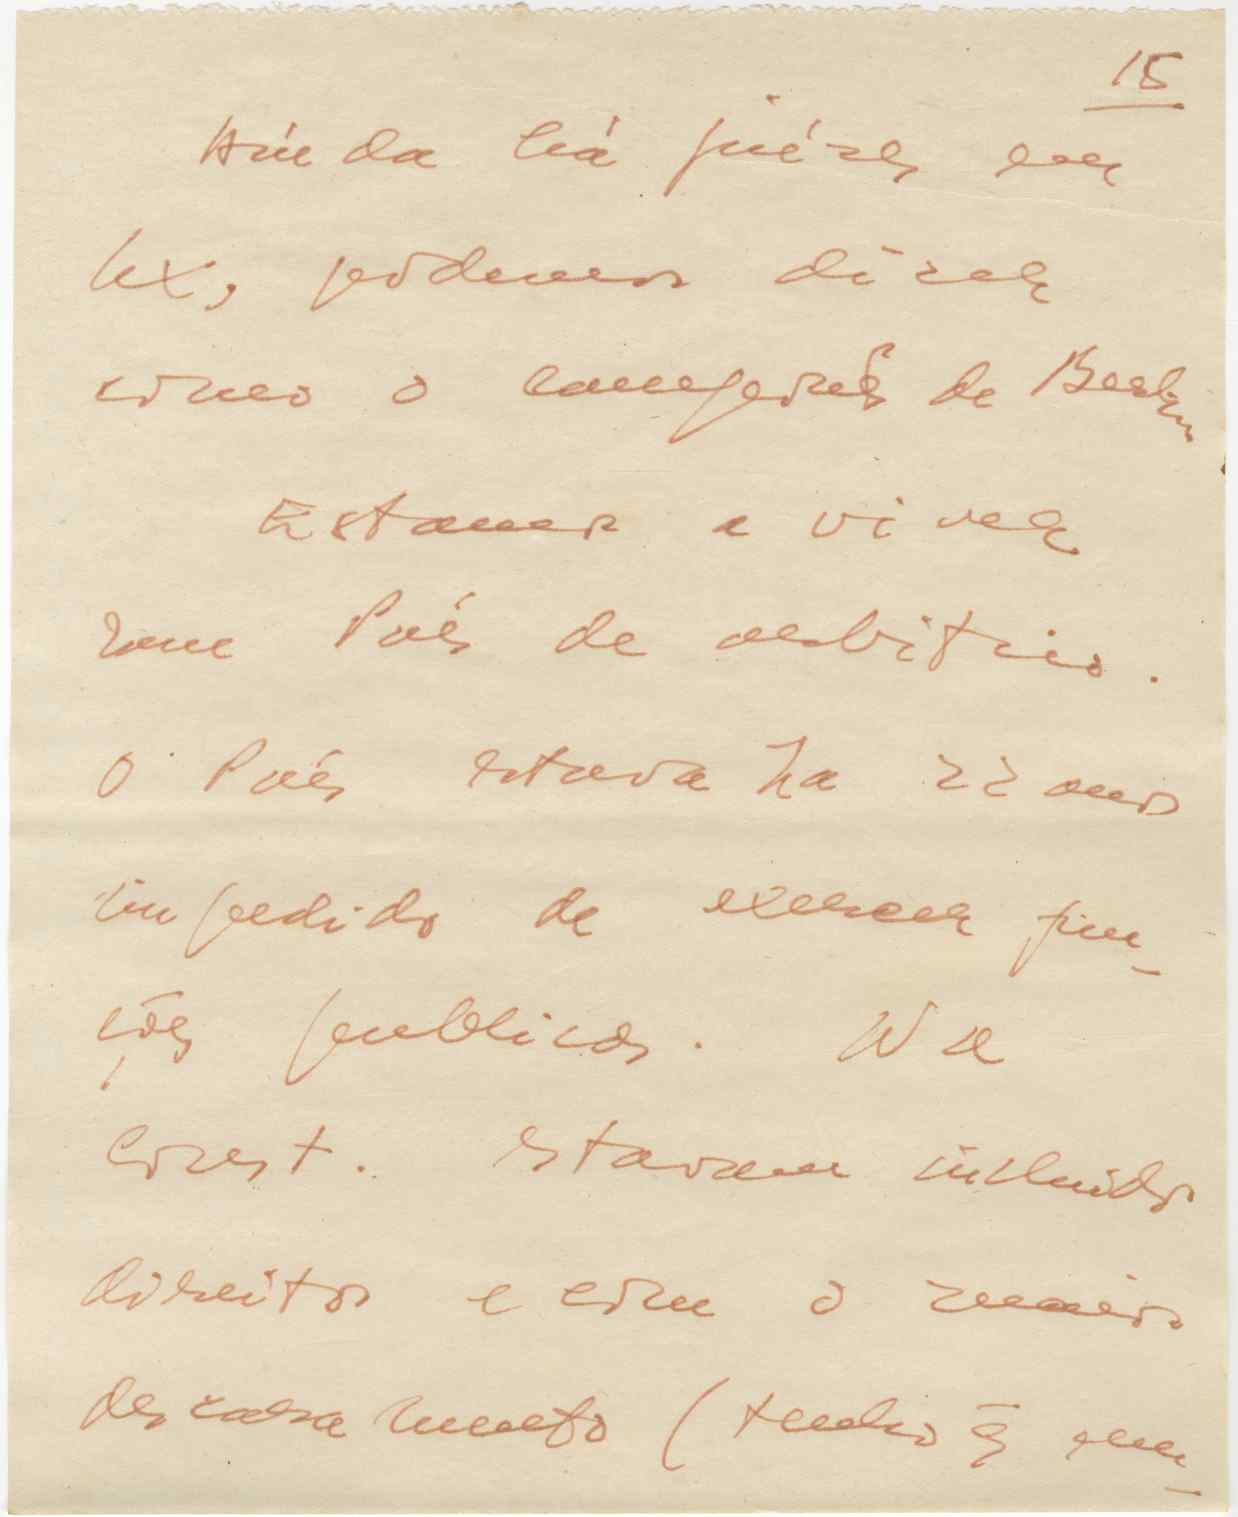 15
Ainda há juízes em
Lx, podemos dizer
como o camponês de Berlim
Estamos a viver
num País de arbítrio.
O País estava ha 22 anos
impedido de exercer fun-
ções publicas. Na
Const. estavam incluidos
direitos e com o maior
descaramento (tenho q em-